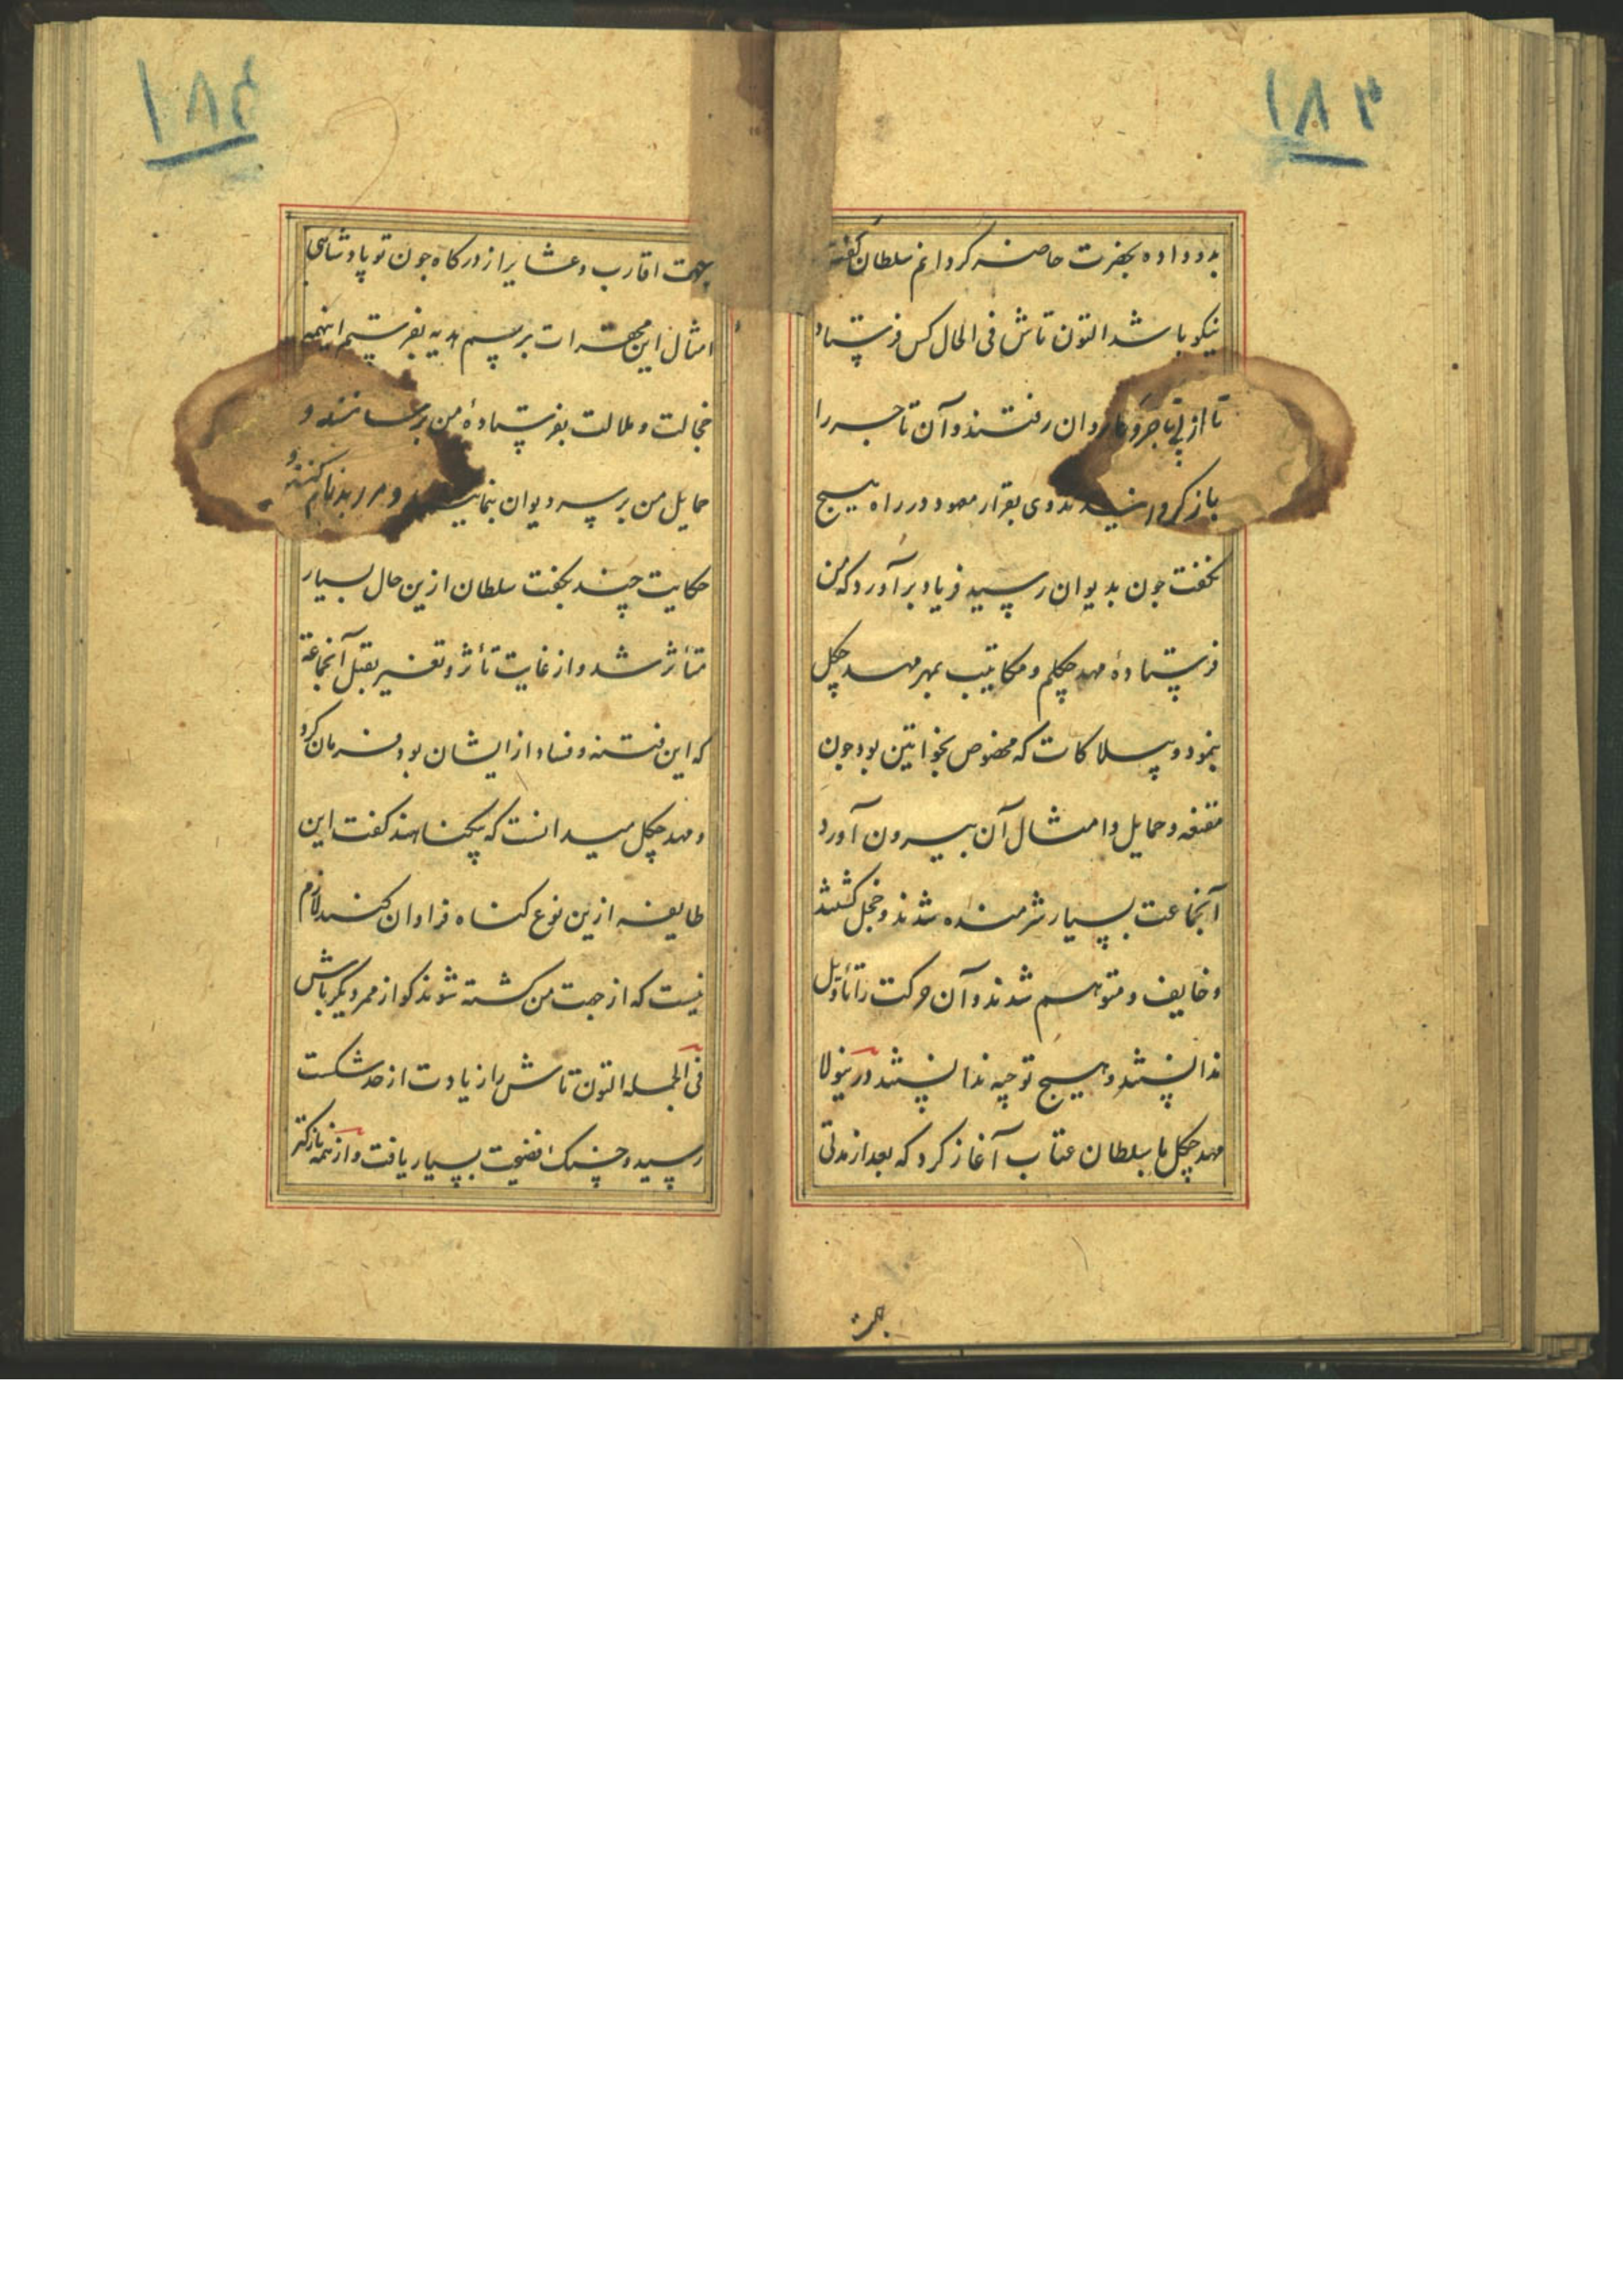 ۱۸۳
بدو داده بحضرت حاضر کردانم سلطان کفت
نیکو باشد التون تاش فی الحال کس فرستاد
تا از پی تاجر روان رفتند و آن تاجر را
باز کردانیدند وی بقرار معهود در راه هیچ
نکفت جون بدیوان رسید فریاد برآورد که من
فرستادهٔ مهد چکلم و مکاتیب بمهر مهد چکل
بنمود و پیلاکات که مخصوص بخواتین بود جون
مقنعه و حمایل و امثال آن بیرون آورد
آنجماعت بسیار شرمنده شدند و خجل کشتند
و خایف و متوهم شدند و آن حرکت را تأویل
ندانستند و هیچ توجیه ندانستند درینولا
مهد چکل با سلطان عتاب آغاز کرد که بعد از مدتی
جهت
۱۸۴
بجهت اقارب و عشایر از درکاه جون تو پادشاهی
امثال این محقرات برسم هدیه بفرستیم اینهمه
خجالت و ملالت بفرستادهٔ من برسانند و
حمایل من بر سر دیوان بنمایند و مرا بدنام کنند و
حکایت چند بکفت سلطان ازین حال بسیار
متأثر شد و از غایت تأثر و تغییر بقتل آنجماعة
که این فتنه و فساد از ایشان بود فرمان کرد
و مهد چکل میدانست که بیکناهند کفت این
طایفه ازین نوع کناه فراوان کنند لازم
نیست که از جهت من کشته شوند کو از ممر دیکر باش
فی الجمله التون تاش را زیادت از حد شکست
رسید و حسنک فضیحت بسیار یافت و از همه نازکتر